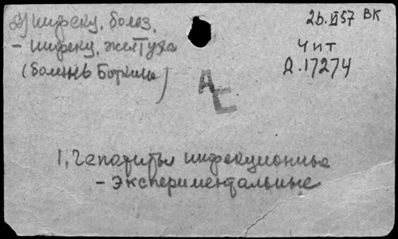 2) инфекц. болез.
- инфекц. желтуха
(болезнь Боткина)
26.XI 57 ВК
Чит
Д.17274
АС
1, Гепатиты инфекционные
- Экспериментальные